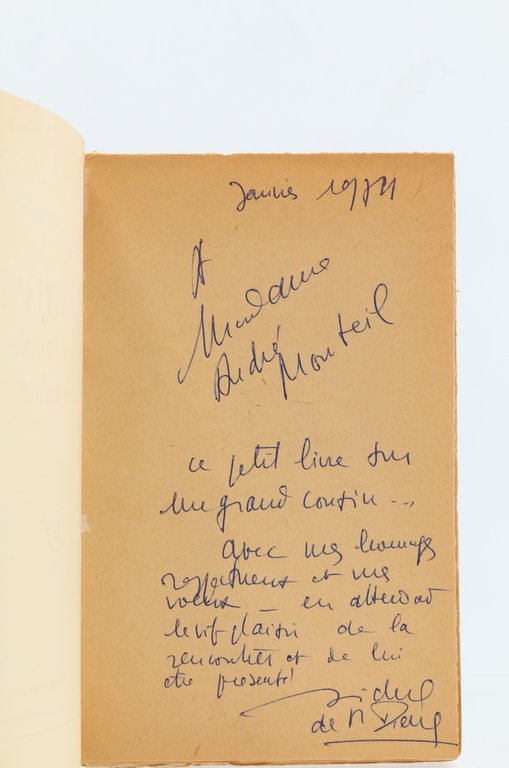 Janvier
A
Madame
André Monteil
ce petit livre sur
un grand cousin...
avec mes hommages
respectueux et mes
voeux — en attendant
le vif plaisir de la
rencontrer et de lui
être présenté
Michel
de St Pierre